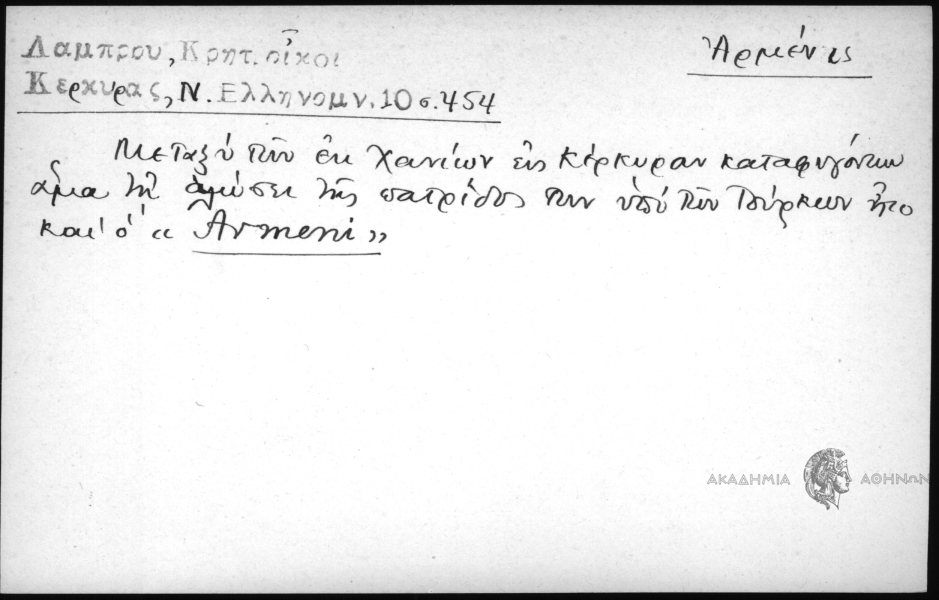 Λαμπρου, Κρητ. οἶκοι
Κερκυρας, Ν. Ελληνομν. 10 σ. 454
Ἀρμένις
Μεταξύ τῶν ἐκ Χανίων εἰς Κέρκυραν καταφυγόντων
ἅμα τῇ ἁλώσει τῆς πατρίδος των ὑπό τῶν Τούρκων ἦτο
και ὁ « Armeni »
ΑΚΑΔΗΜΙΑ ΑΘΗΝΩΝ